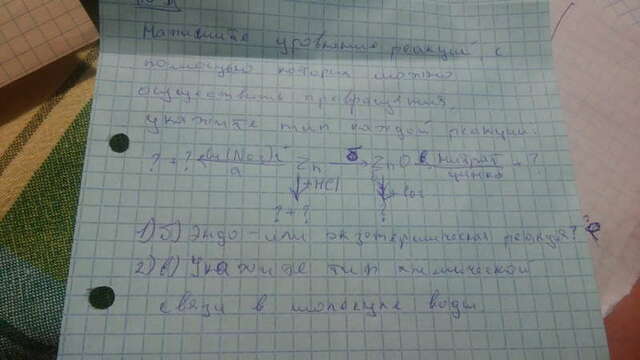 Напишите уравнения реакций, с
помощью которых можно
осуществить превращения,
укажите тип каждой реакции:
? + ? Zn б ZnO в нитрат цинка + ?
а
+HCl
? + ? ?
1) б) Эндо - или экзотермическая реакция?
2) в) Укажите тип химической
связи в молекуле воды